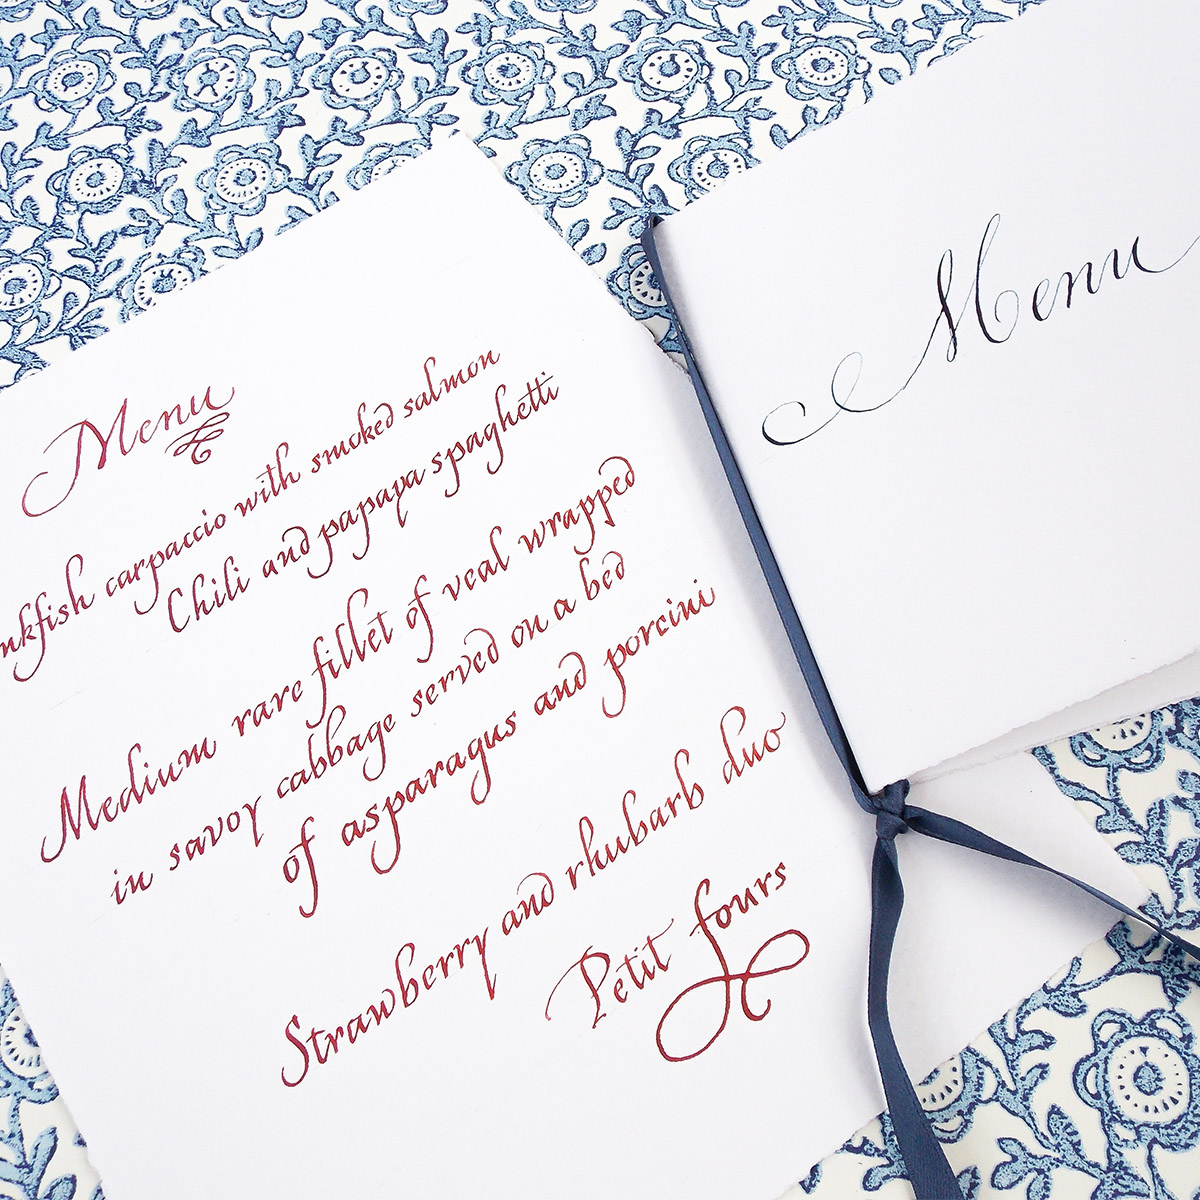 Menu
nkfish carpaccio with smoked salmon
Chili and papaya spaghetti
Medium rare fillet of veal wrapped
in savoy cabbage served on a bed
of asparagus and porcini
Strawberry and rhubarb duo
Petit fours
Menu